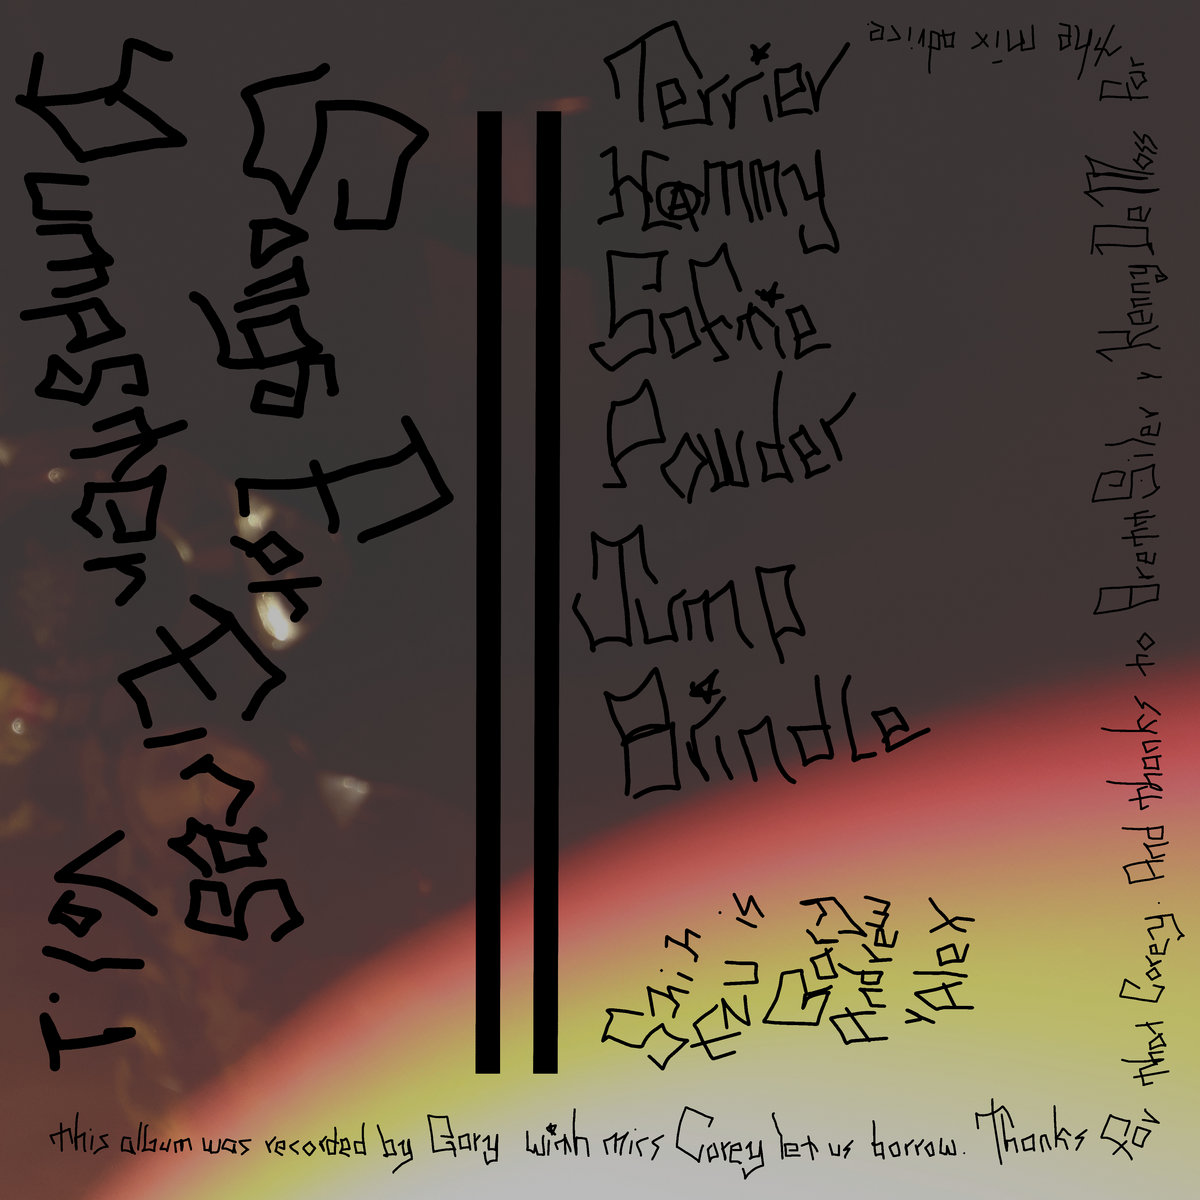 Dumpster
Vol. I
Songs For Eirgas
Terrier
Hammy
Sofrie
Powder
Jump
Brindle
Shih
tzu is
Gary
Andrew
y Alex
this album was recorded by Gary with mics Corey let us borrow. Thanks for
that Corey. And thanks to Brett Siler y Kenny DeMoss for
the mix advice